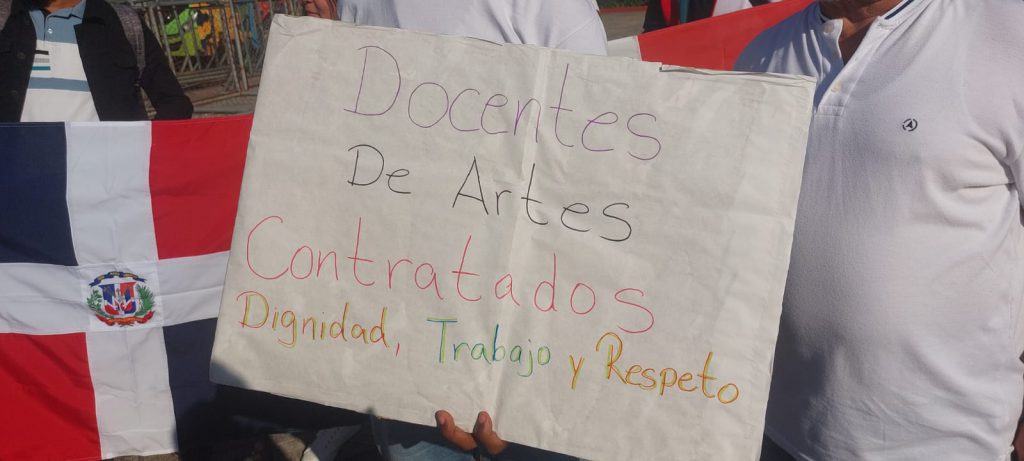 Docentes
De Artes
Contratados
Dignidad, Trabajo y Respeto